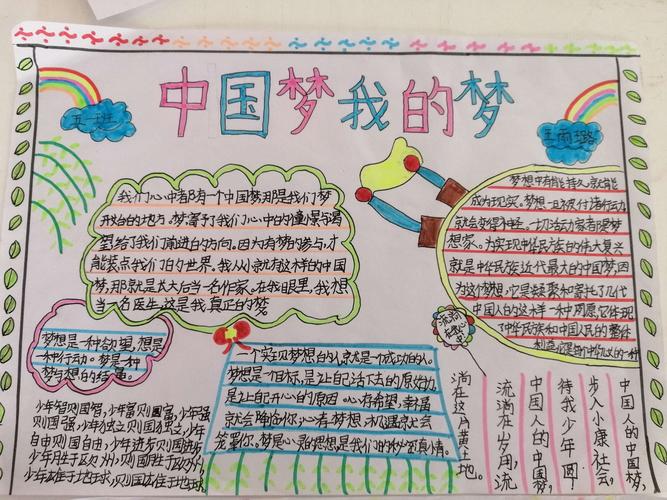 中国梦我的梦
五一班
王雨璐
我们心中都有一个中国梦那是我们梦
开始的地方.梦寄予了我们心中的憧憬与渴
望给了我们前进的方向。因为有梦的参与,才
能装点我们的世界。我从小就有这样的中国
梦,那就是长大后当一名作家,在我眼里,我想
当一名医生.这是我真正的梦
梦想中有能持久.就能
成为现实。梦想一旦被付诸行动,
就会变得神圣。一切活动家都是梦
想家。为实现中华民族的伟大复兴
就是中华民族近代最大的中国梦,因
为这个梦想,它是凝聚和寄托了几代
中国人的这大样一种夙愿它体现
了中华民族和中国人民的整体
利益,它是每个中华儿女的一种
梦想是一种欲望,想是
一种行动。梦是一种
梦与想的结晶。
一个实现梦想的人,就是一个成功的人。
梦想是一个目标,是让自己活下去的原始力
是让自己开心的原因。心有希望,幸福
就会降临你,心有梦想,机遇就会
笼罩你,梦是心灵的思想是我们的秘密真情。
少年智则国智,少年富则国富,少年强
则国强,少年独立则国独立,少年
自由则国自由,少年进步则国进步
少年胜于欧州,则国胜于欧州,
少年雄于地球,则国雄于地球
中国人的中国梦,
步入小康社会,
待我少年回
中国人的中国梦,
流淌在岁月,流
淌在这片黄土地。